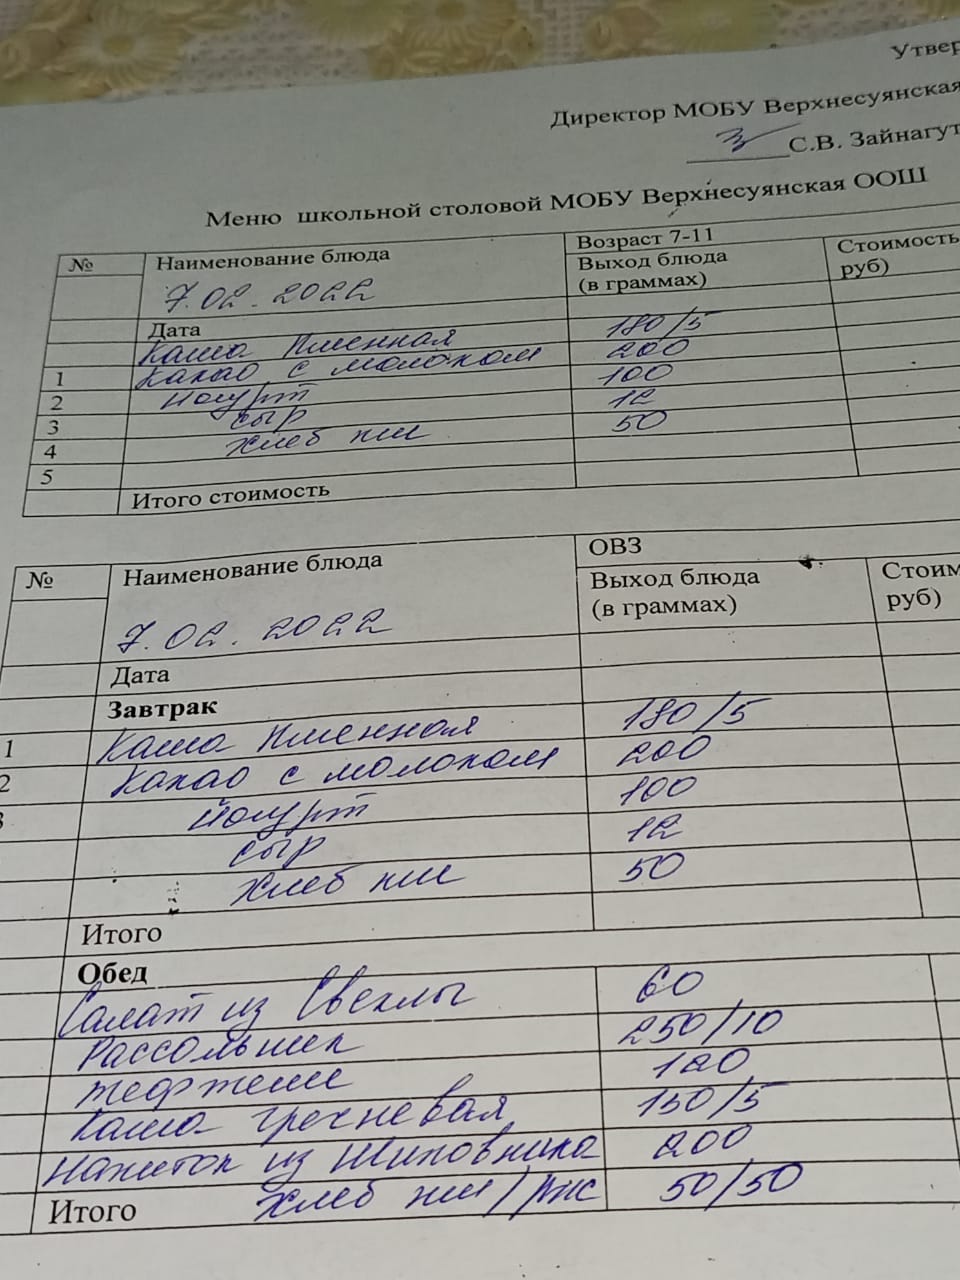 Утвер
Директор МОБУ Верхнесуянская
С.В. Зайнагут
Меню школьной столовой МОБУ Верхнесуянская ООШ
№ Наименование блюда Возраст 7-11
Выход блюда (в граммах) Стоимость руб)
7.02.2022
Дата
Каша пшенная 180/5
1 Какао с молоком 200
2 йогурт 100
3 сыр 12
4 хлеб пш 50
5
Итого стоимость
№ Наименование блюда ОВЗ
Выход блюда (в граммах) Стоим руб)
7.02.2022
Дата
Завтрак
1 Каша пшенная 180/5
2 Какао с молоком 200
3 йогурт 100
сыр 12
хлеб пш 50
Итого
Обед
Салат из свеклы 60
Рассольник 250/10
тефтели
Каша гречневая 150/5
Напиток из шиповника 200
Итого хлеб пш/рж 50/50